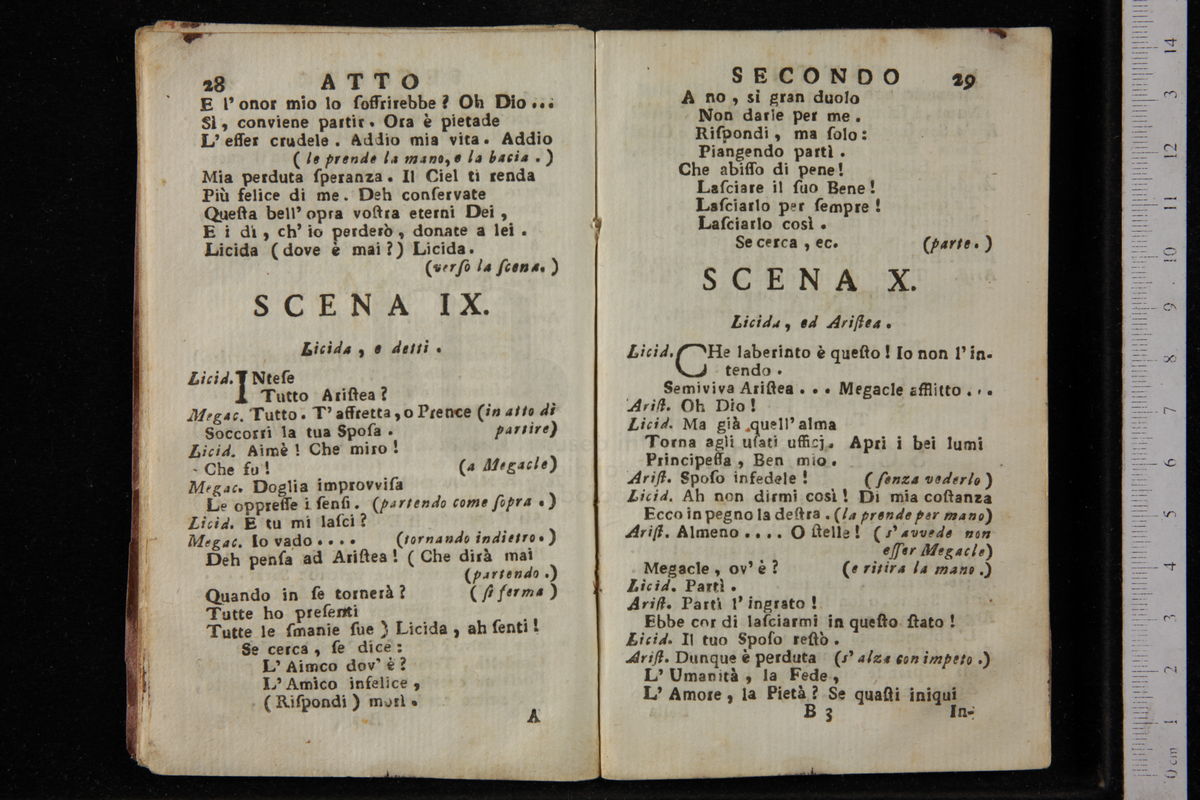 28 ATTO
E l' onor mio lo ſoffrirebbe? Oh Dio...
Sì, conviene partir. Ora è pietade
L' eſſer crudele. Addio mia vita. Addio
(le prende la mano, e la bacia.)
Mia perduta ſperanza. Il Ciel ti renda
Più felice di me. Deh conſervate
Queſta bell' opra voſtra eterni Dei,
E i dì, ch' io perderò, donate a lei.
Licida (dove è mai?) Licida.
(verſo la ſcena.)
SCENA IX.
Licida, e detti.
Licid. INteſe
Tutto Ariſtea?
Megac. Tutto. T' affretta, o Prence (in atto di
Soccorri la tua Spoſa. partire)
Licid. Aimè! Che miro!
Che fu! (a Megacle)
Megac. Doglia improvviſa
Le oppreſſe i ſenſi. (partendo come ſopra.)
Licid. E tu mi laſci?
Megac. Io vado.... (tornando indietro.)
Deh penſa ad Ariſtea! (Che dirà mai
(partendo.)
Quando in ſe tornerà? (ſi ferma)
Tutte ho preſenti
Tutte le ſmanie ſue) Licida, ah ſenti!
Se cerca, ſe dice:
L' Aimco dov' è?
L' Amico infelice,
(Riſpondi) morì.
A
SECONDO 29
A no, sì gran duolo
Non darle per me.
Riſpondi, ma ſolo:
Piangendo partì.
Che abiſſo di pene!
Laſciare il ſuo Bene!
Laſciarlo per ſempre!
Laſciarlo così.
Se cerca, ec. (parte.)
SCENA X.
Licida, ed Ariſtea.
Licid. CHe laberinto è queſto! Io non l' in-
tendo.
Semiviva Ariſtea... Megacle afflitto...
Ariſt. Oh Dio!
Licid. Ma già quell' alma
Torna agli uſati ufficj. Apri i bei lumi
Principeſſa, Ben mio.
Ariſt. Spoſo infedele! (ſenza vederlo)
Licid. Ah non dirmi così! Di mia coſtanza
Ecco in pegno la deſtra. (la prende per mano)
Ariſt. Almeno.... O ſtelle! (s' avvede non
eſſer Megacle)
Megacle, ov' è? (e ritira la mano.)
Licid. Partì.
Ariſt. Partì l' ingrato!
Ebbe cor di laſciarmi in queſto ſtato!
Licid. Il tuo Spoſo reſtò.
Ariſt. Dunque è perduta (s' alza con impeto.)
L' Umanità, la Fede,
L' Amore, la Pietà? Se quaſti iniqui
B 3 In-
0 cm 1 2 3 4 5 6 7 8 9 10 11 12 3 14